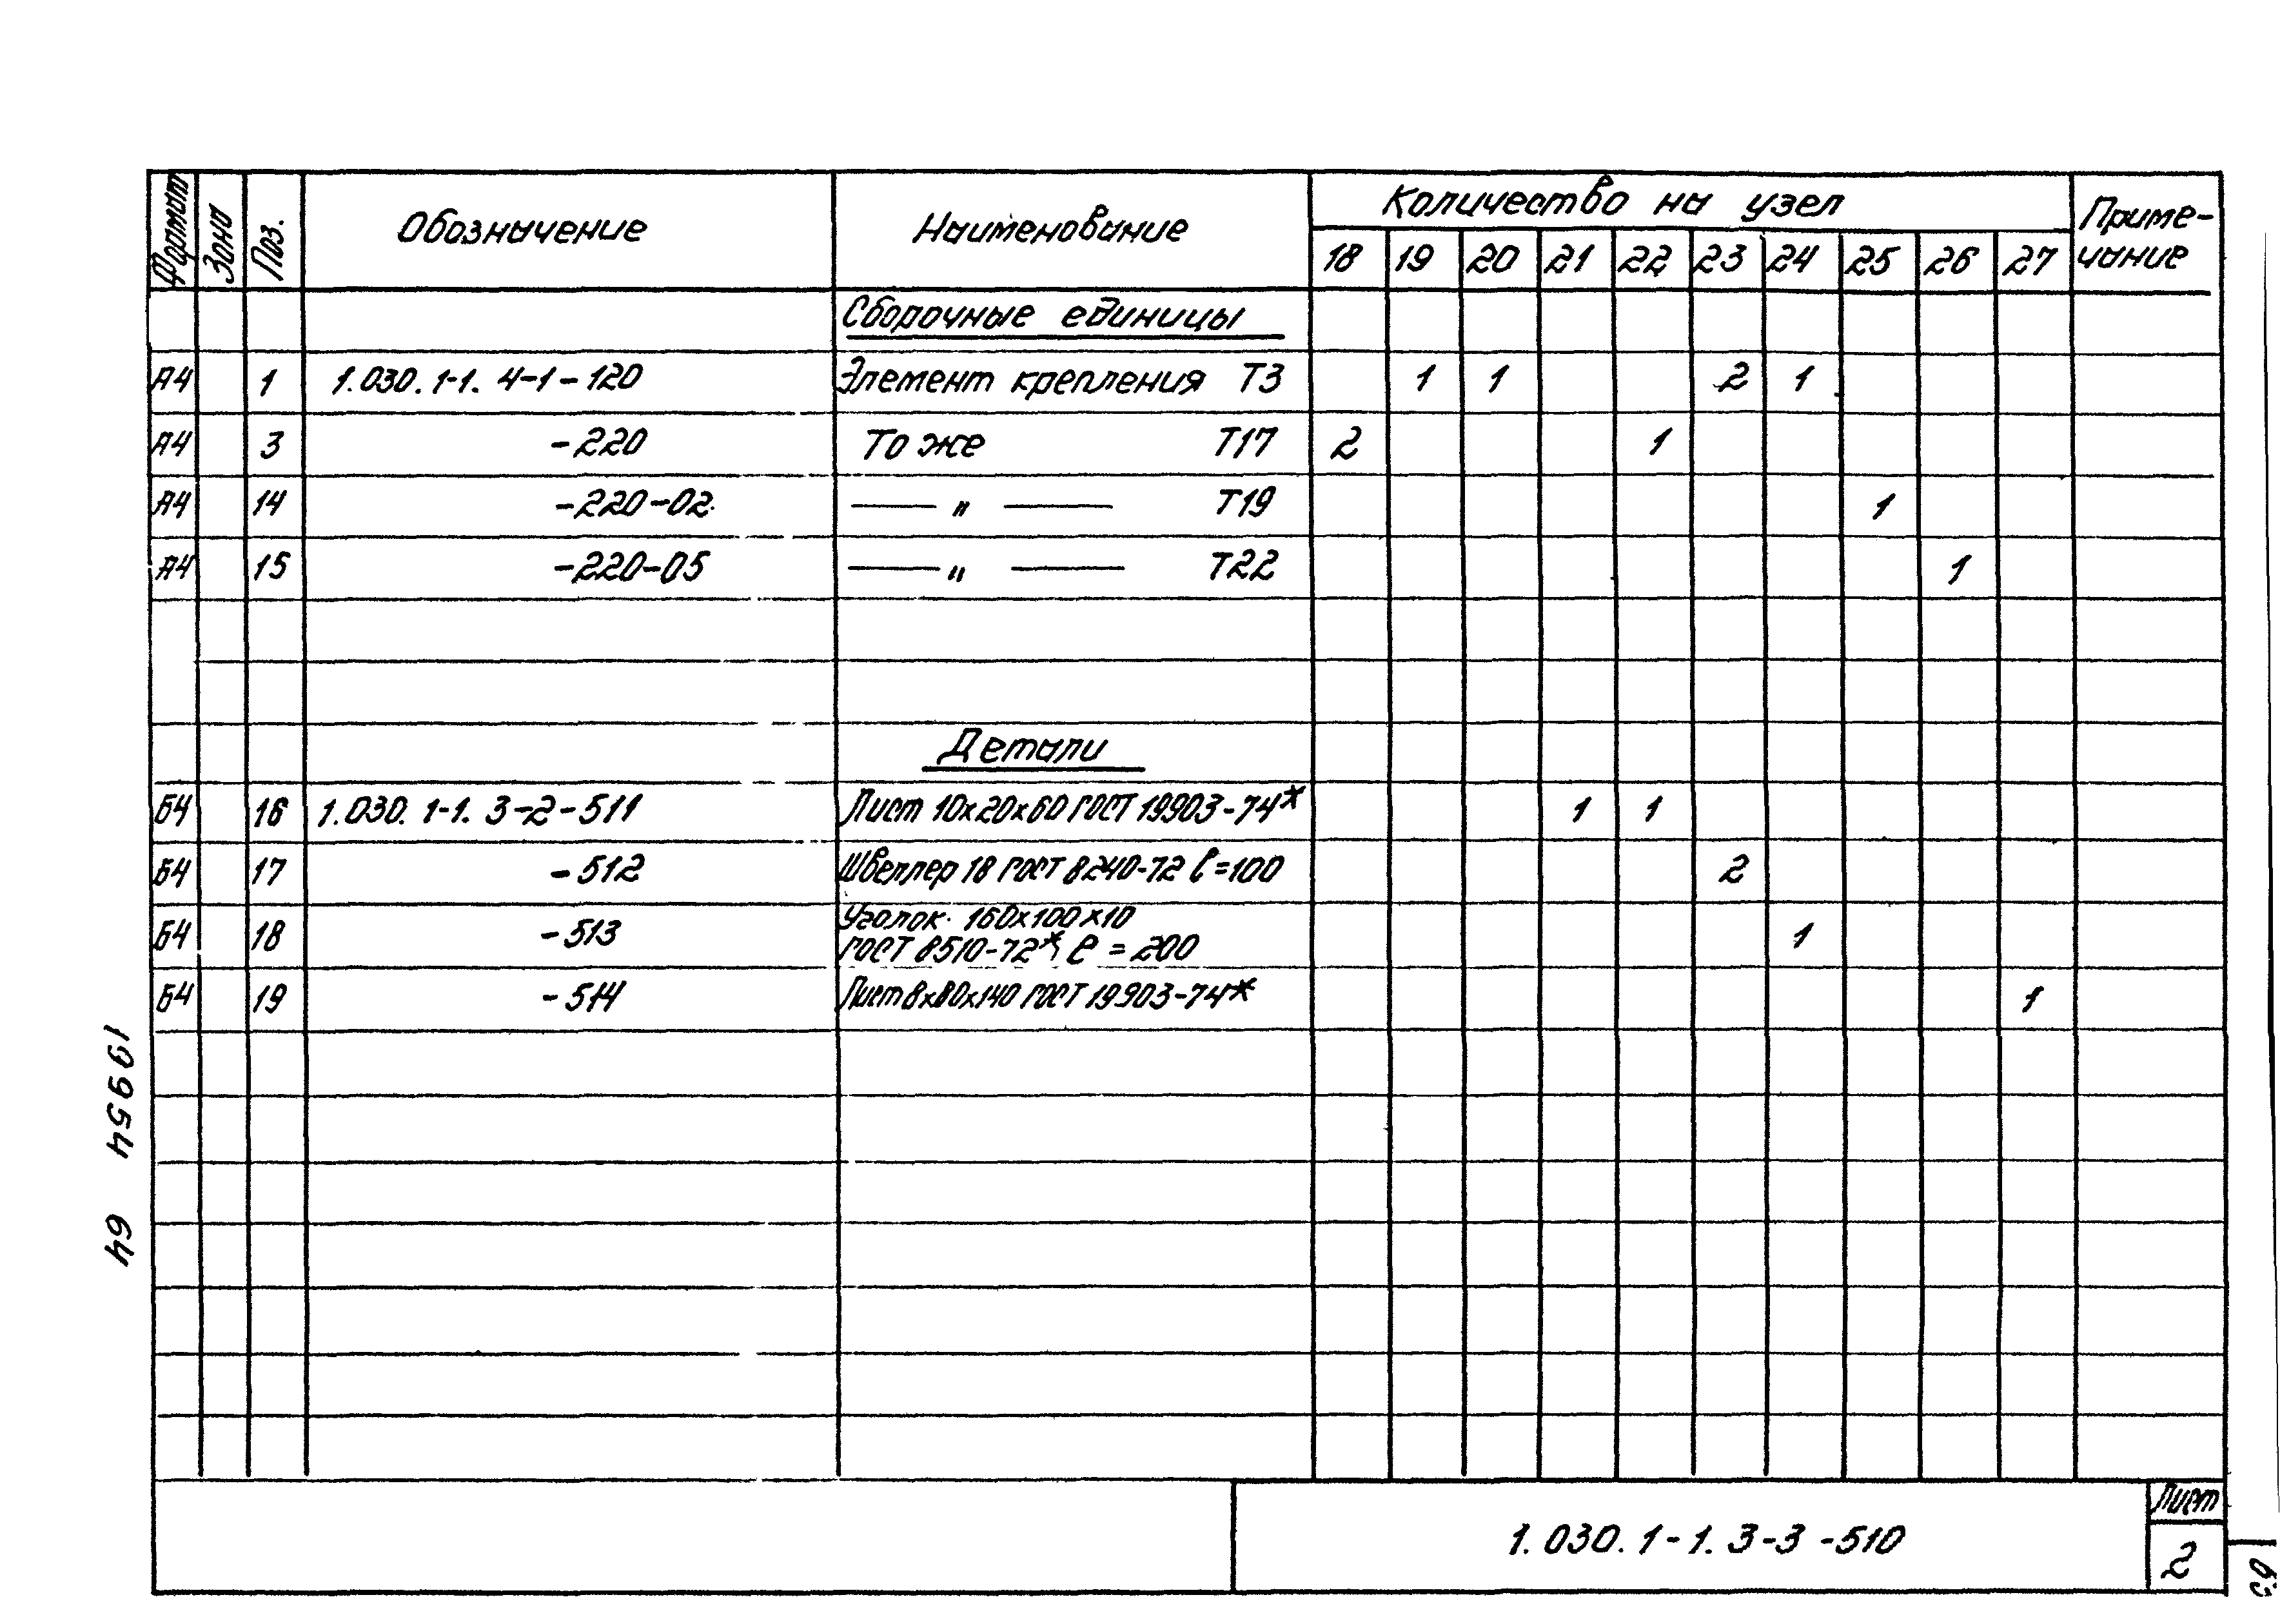 Формат Зона Поз. Обозначение Наименование Количество на узел Приме-
чание
18 19 20 21 22 23 24 25 26 27
Сборочные единицы
А4 1 1.030.1-1. 4-1-120 Элемент крепления Т3 1 1 2 1
А4 3 -220 То же Т17 2 1
А4 14 -220-02 — " — Т19 1
А4 15 -220-05 — " — Т22 1
Детали
Б4 16 1.030.1-1. 3-2-511 Лист 10х20х60 ГОСТ 19903-74* 1 1
Б4 17 -512 Швеллер 18 ГОСТ 8240-72 ℓ=100 2
Б4 18 -513 Уголок 160х100х10
ГОСТ 8510-72*, ℓ = 200 1
Б4 19 -514 Лист 8х80х140 ГОСТ 19903-74* 1
19954 64
1.030.1-1.3-3-510
Лист
2
63